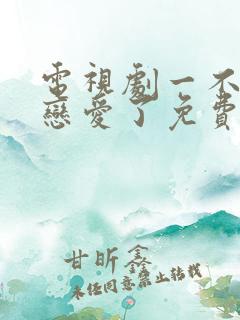 電視劇一不
戀愛了免費
甘昕鑫
未任同意禁止轉載